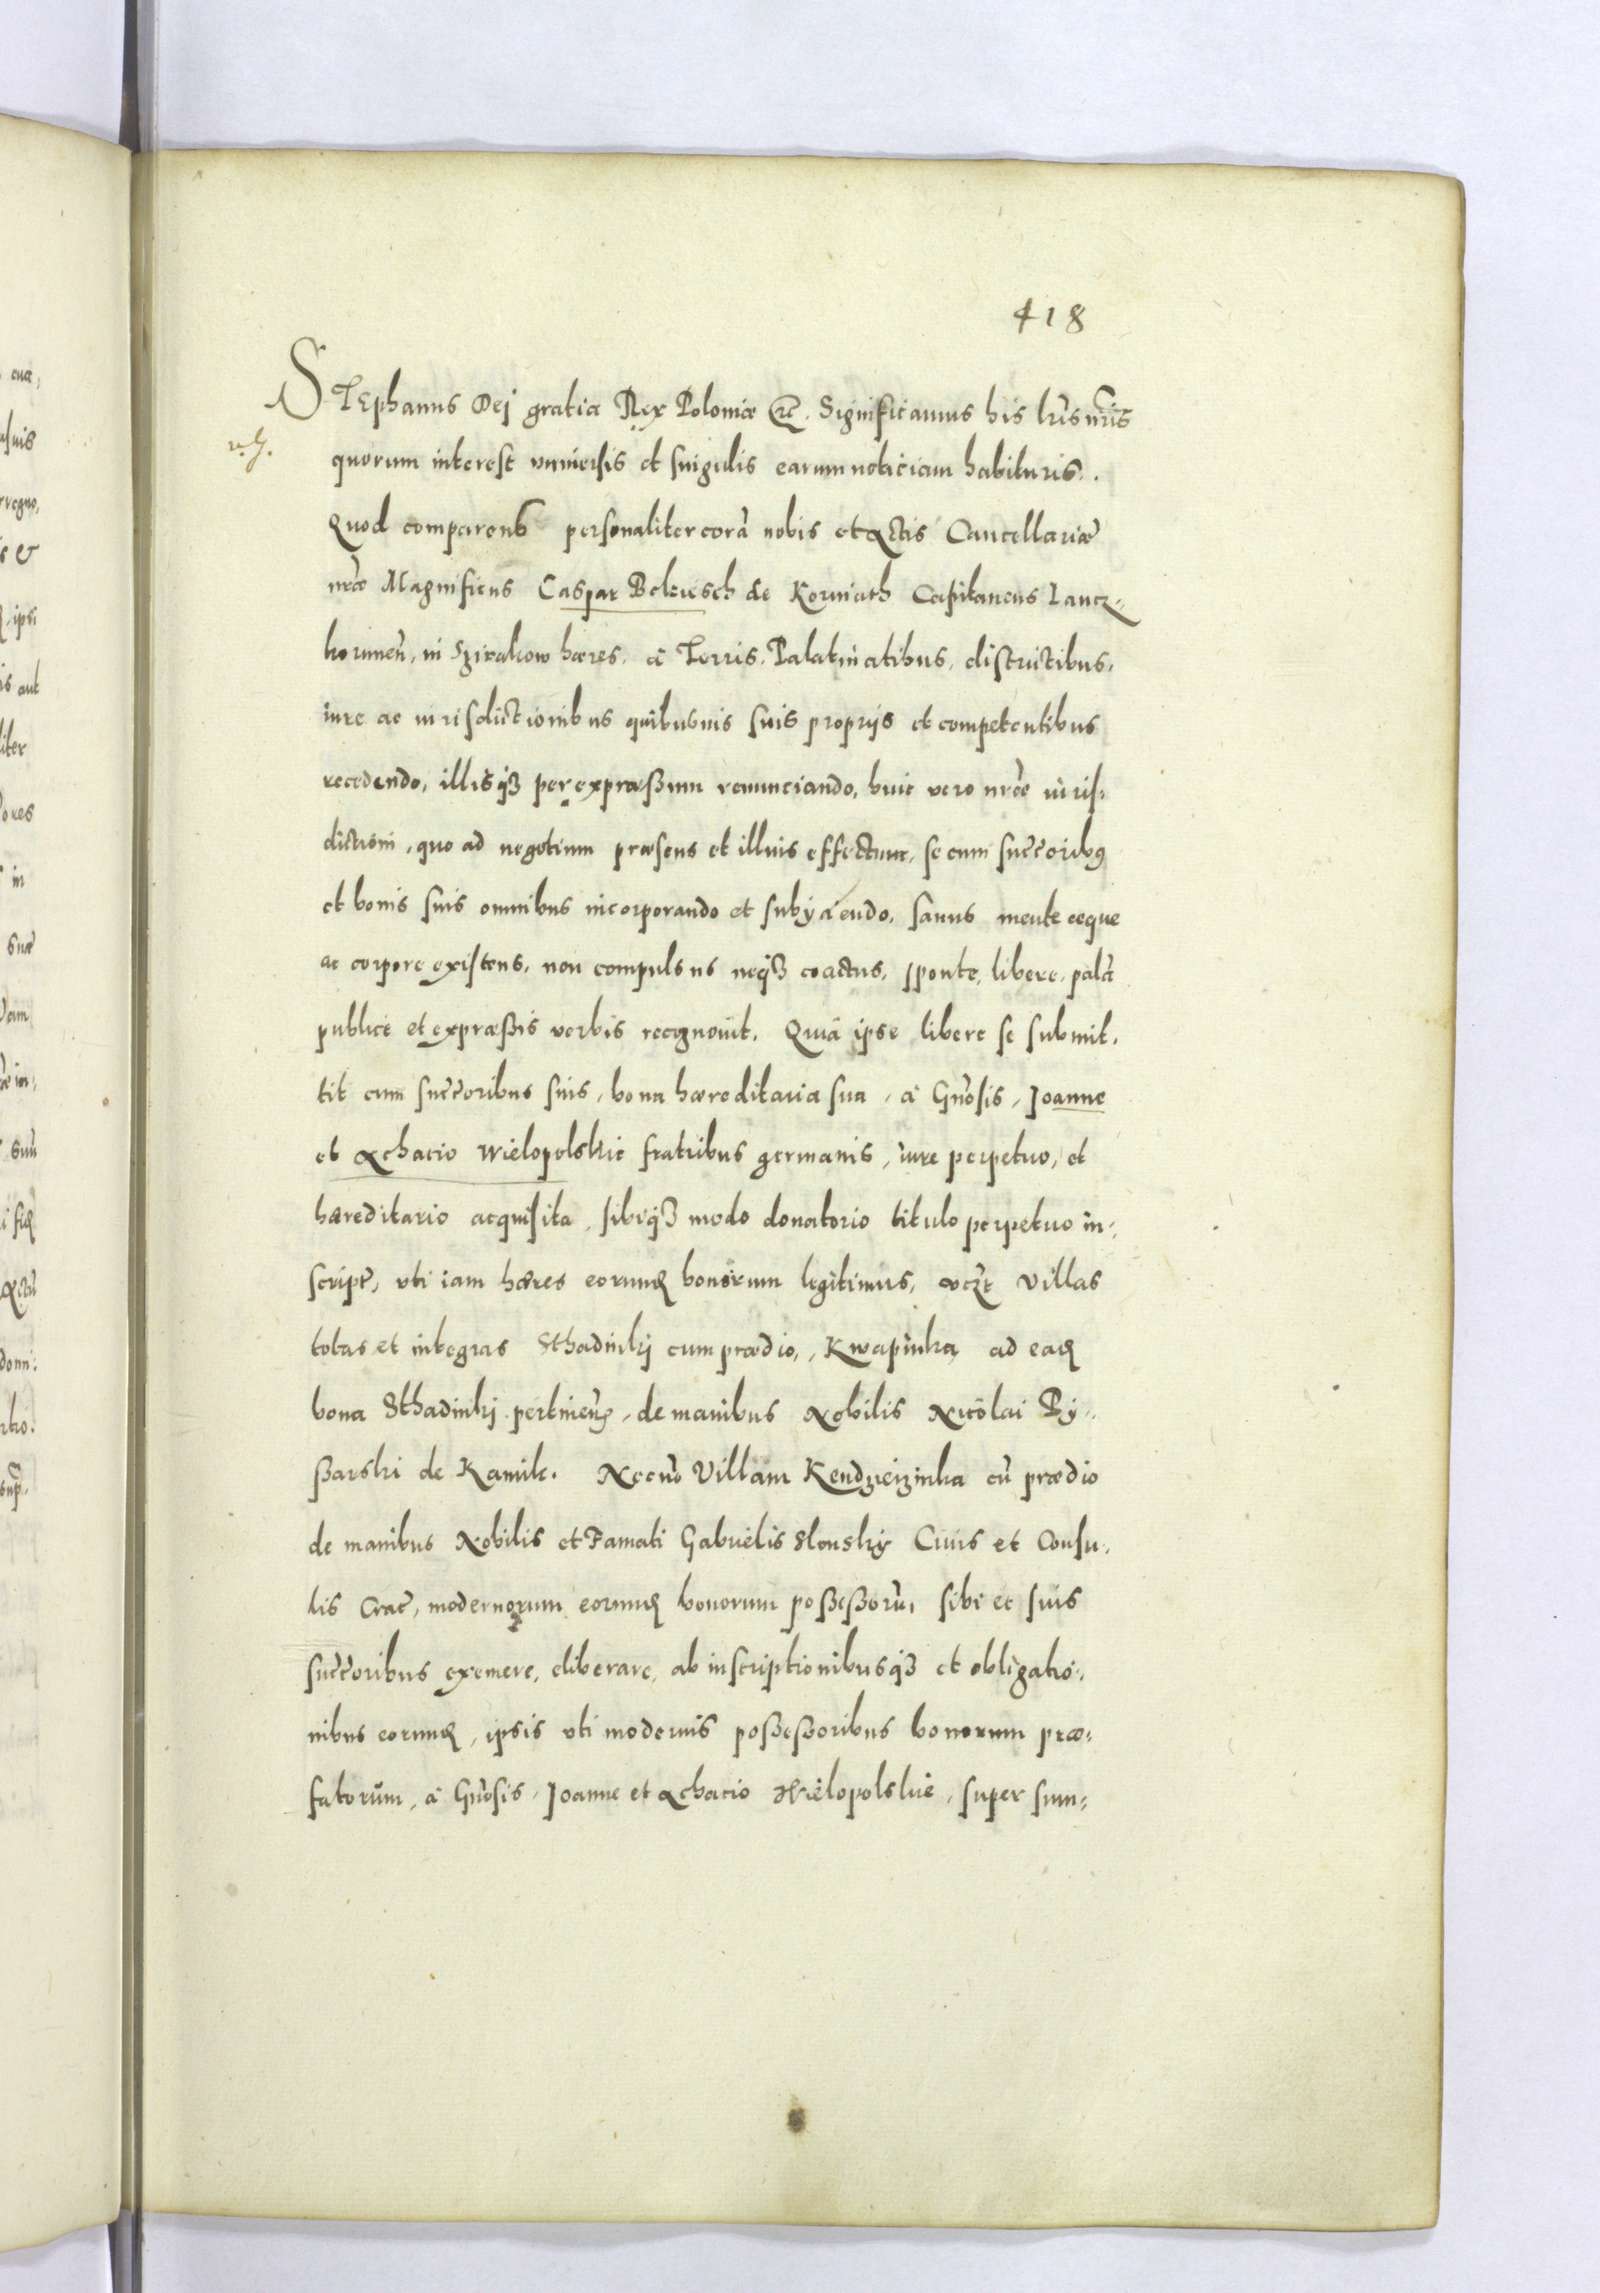 418
STEphanus Dej gratia Rex Poloniæ etc. Significamus his lris nris
quorum interest vniuersis et singulis earum noticiam habituris.
Quod comparens personaliter corã nobis et Actis Cancellariæ
nræ Magnificus Caspar Bekiesch de Korniath Capitaneus Lancz-
koruneñ, in Szirakow hæres, à Terris, Palatinatibus, districtibus,
iure ac iurisdictionibus quibusuis suis proprijs et competentibus
recedendo, illisq3 per expræßum renunciando, huic vero nræ iuris-
dictioni, quo ad negotium præsens et illius effectum, se cum succoribus
et bonis suis omnibus incorporando et subijciendo, sanus mente æque
ac corpore existens, non compulsus neq3 coactus, sponte, libere, palã
publice et expræßis verbis recognouit. Quia ipse libere se submit-
tit cum succoribus suis, bona hæreditaria sua, à Gñosis, Joanne
et Achacio Wielopolskie fratribus germanis, iure perpetuo, et
hæreditario acquisita, sibiq3 modo donatorio titulo perpetuo in-
script, vti iam hæres eorund bonorum legitimus, vczt villas
totas et integras Sthadniki cum prædio, Kwapinka ad ead
bona Sthadniki pertineñ, de manibus Nobilis Nicolai Py-
ßarski de Kamik. Necnõ Villam Kendzieizinka cũ prædio
de manibus Nobilis et Famati Gabrielis Slonsky Ciuis et Consu-
lis Crac, modernorum eorund bonorum poßeßorũ, sibi et suis
succoribus eximere, eliberare, ab inscriptionibusq3 et obligatio-
nibus eorund, ipsis vti modernis poßeßoribus bonorum præ-
fatorum, à Gñosis, Joanne et Achacio Wielopolskie, super sum-